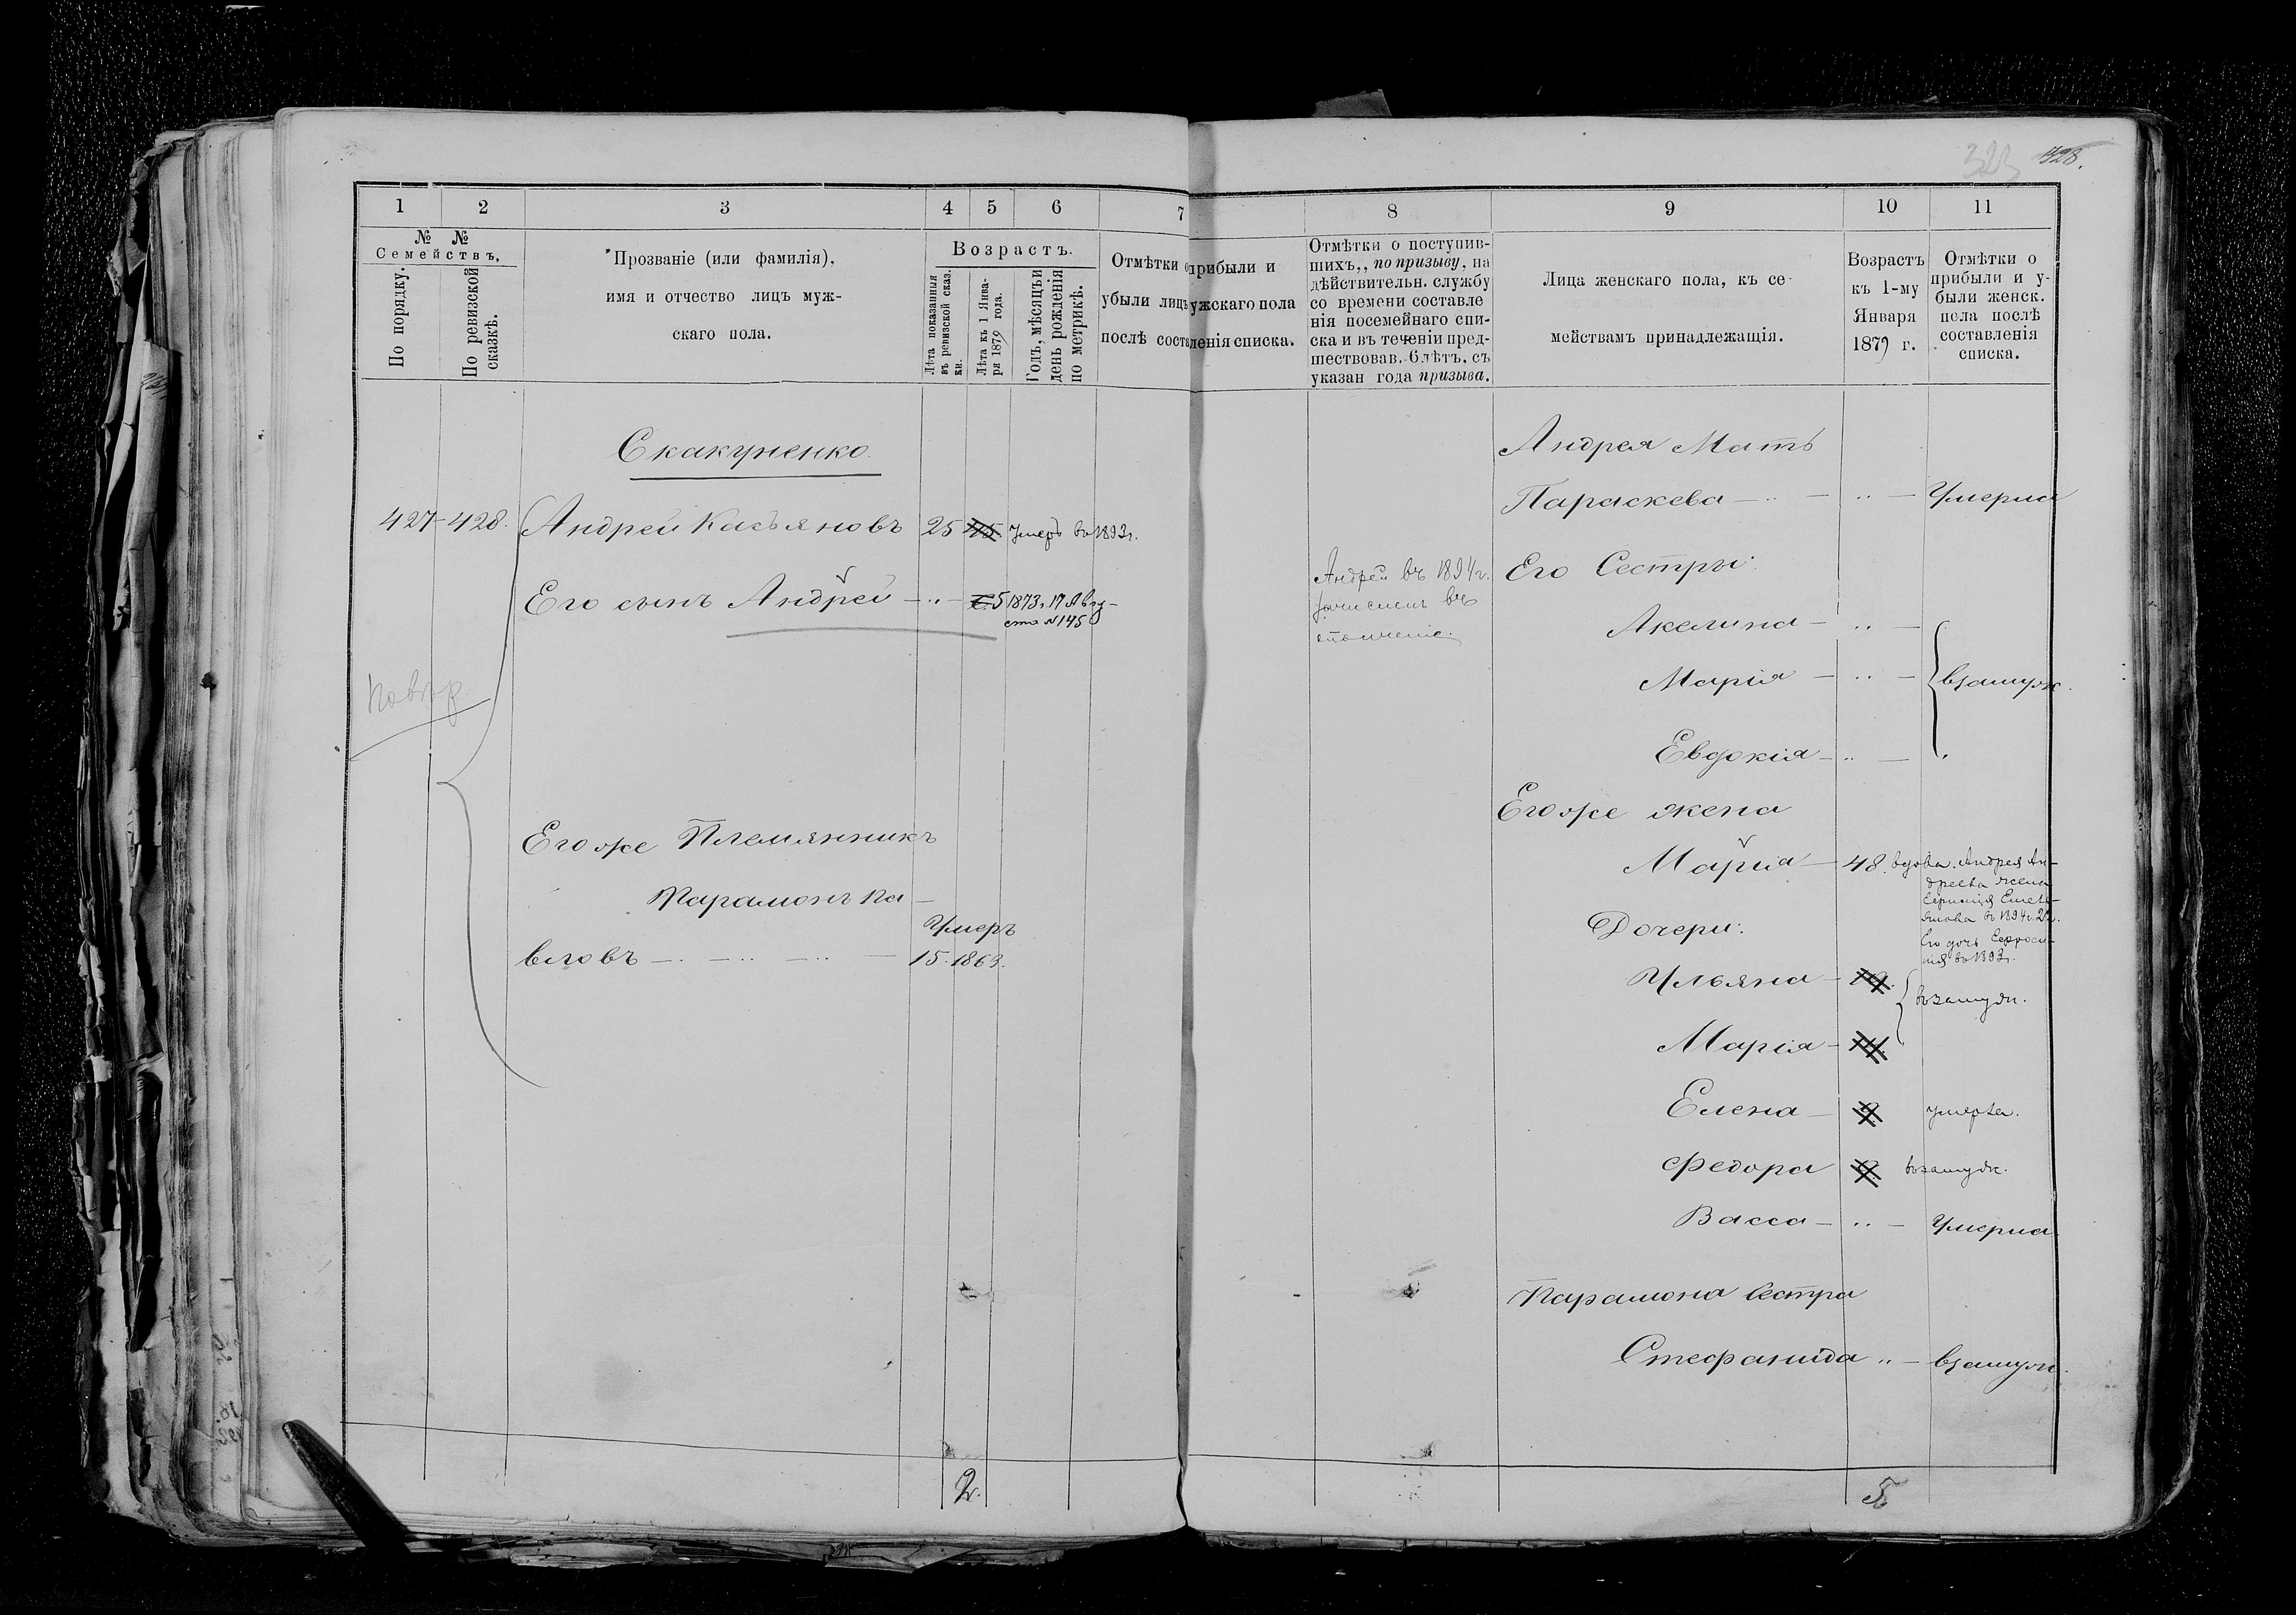 323 428.
1 2 3 4 5 6 7 8 9 10 11
№ №
Семействъ,
По порядку.
По ревизской сказкѣ.
Прозваніе (или фамилія),
имя и отчество лицъ муж-
скаго пола.
Возрастъ.
Лѣта показанныя
въ ревизской сказ.
ки.
Лѣта къ 1 Янва-
ря 1879 года.
Годъ, мѣсяцъ и
день рожденія
по метрикѣ.
Отмѣтки о прибыли и
убыли лицъ мужскаго пола
послѣ составленія списка.
Отмѣтки о поступив-
шихъ,, по призыву, на
дѣйствительн. службу
со времени составле
нія посемейнаго спи-
ска и въ теченіи пред-
шествовав. 6 лѣтъ, съ
указан года призыва.
Лица женскаго пола, къ се-
мействамъ принадлежащія.
Возрастъ
къ 1-му
Января
1879 г.
Отмѣтки о
прибыли и у-
были женск.
пола послѣ
составленія
списка.
Скакуненко
427 - 428. Андрей Касьяновъ 25 45 умеръ въ 1893г.
Его сынъ Андрей — „ — 5 1873, 17 Авгу-
ста №145
Егоже Племянникъ
Парамонъ Па-
Умеръ
вловъ — „ — „ — „ — 15. 1863.
2.
Андрей въ 1894г.
зачисленъ въ
ополченіе.
Андрея Мать
Параскева — „ — „ — Умерла
Его Сестры:
Акелина — „ —
Марія — „ — взамуж.
Евдокія — „ —
Егоже жена
Марія — 48. вдова. Андрея Ан-
дреева жена
Емель-
янова въ 1894г. 21г.
Его дочь Ефроси-
нія въ 1893г.
Дочери:
Ульяна — въ замуж.
Марія —
Елена — умерла.
Федора взамуж.
Васса — „ — Умерла
Парамона Сестра
Стефанида „ — взамуж.
5.